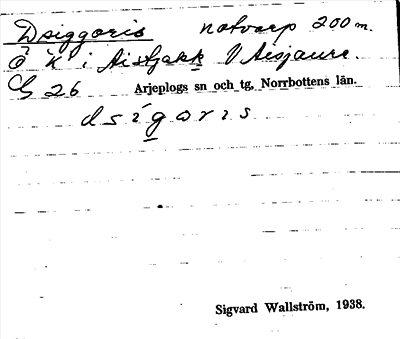 Dsiggoris notvarp 200 m.
Ö K i Aistjakk V Aisjaure.
G 26 Arjeplogs sn och tg, Norrbottens län.
dsígoris
Sigvard Wallström, 1938.